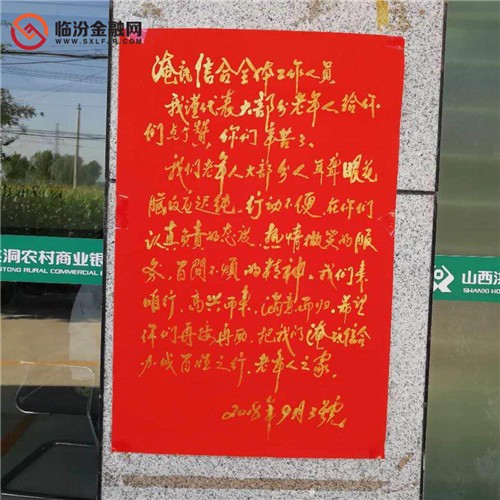 临汾金融网
WWW.SXLFJR.COM
淹底信合全体工作人员
我谨代表大部分老年人给你
们点个赞,你们辛苦了、
我们老年人大部分人耳聋眼花
脑反应迟钝、行动不便、在你们
认真负责的态度、热情微笑的服
务、百问不烦的精神、我们来
咱行、高兴而来、满意而归、希望
你们再接再励、把我们淹底信合
办成百姓之行、老年人之家、
2018年9月3號
洞农村商业银
TONG RURAL COMMERCIAL B
山西洪
SHANXI HO